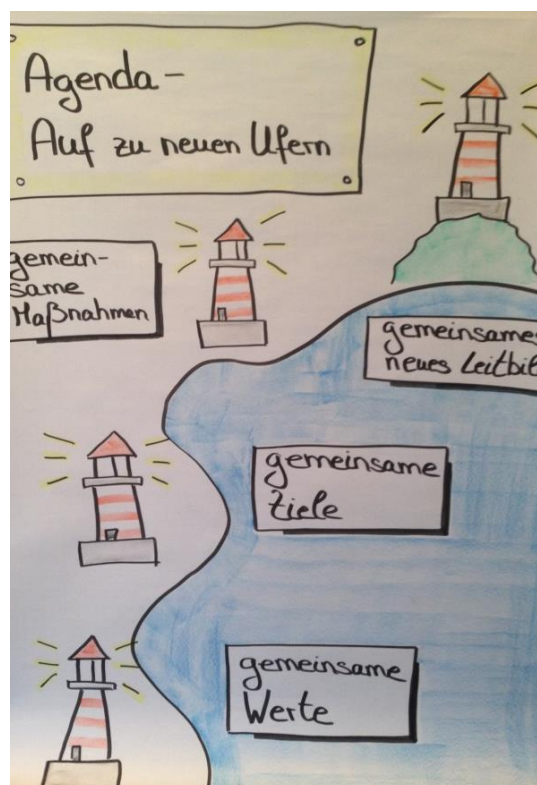 Agenda-
Auf zu neuen Ufern
gemein-
same
Maßnahmen
gemeinsames
neues Leitbil
gemeinsame
Ziele
gemeinsame
Werte